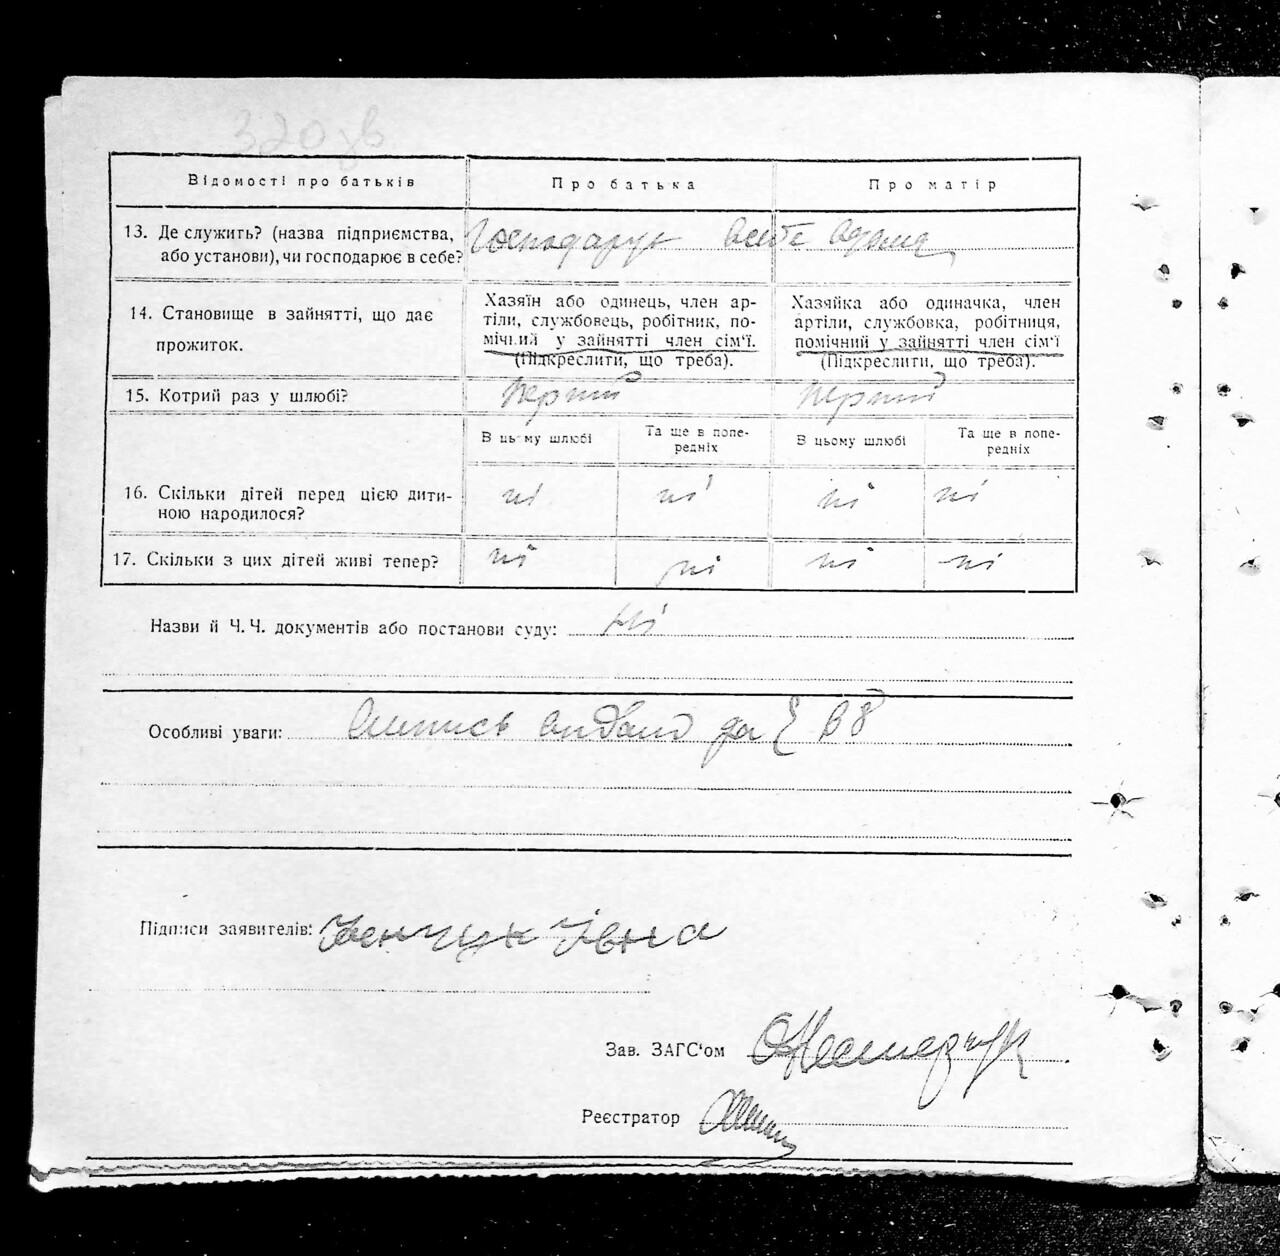 320 зв
Відомості про батьків Про батька Про матір
13. Де служить? (назва підприємства, або установи), чи господарює в себе? Господарує
14. Становище в зайнятті, що дає прожиток.
Хазяїн або одинець, член ар-
тіли, службовець, робітник, по-
мічний у зайнятті член сім'ї.
(Підкреслити, що треба).
Хазяйка або одиначка, член
артіли, службовка, робітниця,
помічний у зайнятті член сім'ї
(Підкреслити, що треба).
15. Котрий раз у шлюбі? перший перший
В цьому шлюбі
Та ще в попе-
редніх
В цьому шлюбі
Та ще в попе-
редніх
16. Скільки дітей перед цією дити-
ною народилося? ні ні ні ні
17. Скільки з цих дітей живі тепер? ні ні ні ні
Назви й Ч. Ч. документів або постанови суду: Ні
Особливі уваги:
Підписи заявителів:
Зав. ЗАГС'ом
Реєстратор